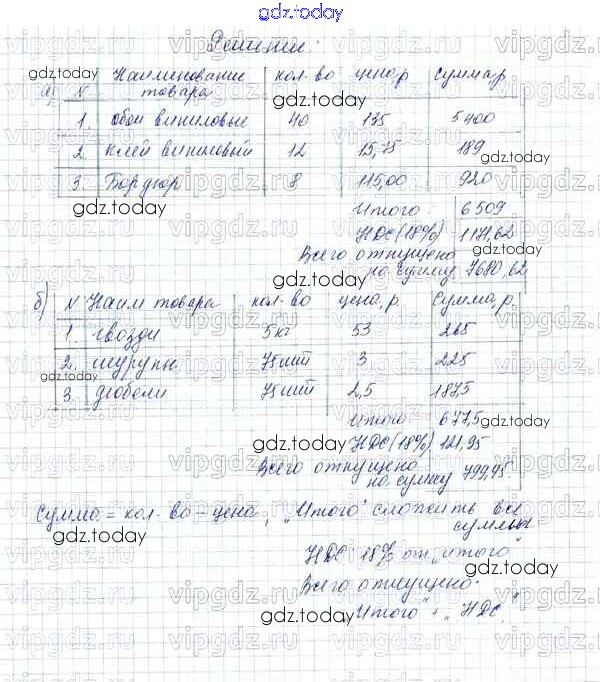 gdz.today
Решение:
а) N Наименование товара кол-во цена,р сумма,р
1. обои виниловые 40 135 5400
2. клей виниловый 12 15,75 189
3. Бордюр 8 115,00 920
Итого: 6509
НДС (18%) 1171,62
Всего отпущено
на сумму 7680,62
б) N Наим товара кол-во цена, р Сумма, р.
1. гвозди 5кг 53 265
2. шурупы 75шт 3 225
3. дюбели 75шт 2,5 187,5
Итого: 677,5
НДС (18%) 121,95
Всего отпущено
на сумму 799,95.
Сумма = кол-во - цена, „Итого" сложить все
суммы
НДС: 18% от „итого"
Всего отпущено:
„Итого" + „НДС."